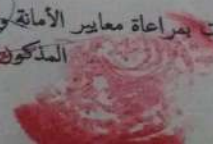 بمراعاة معايير الأمانة و
المذكور